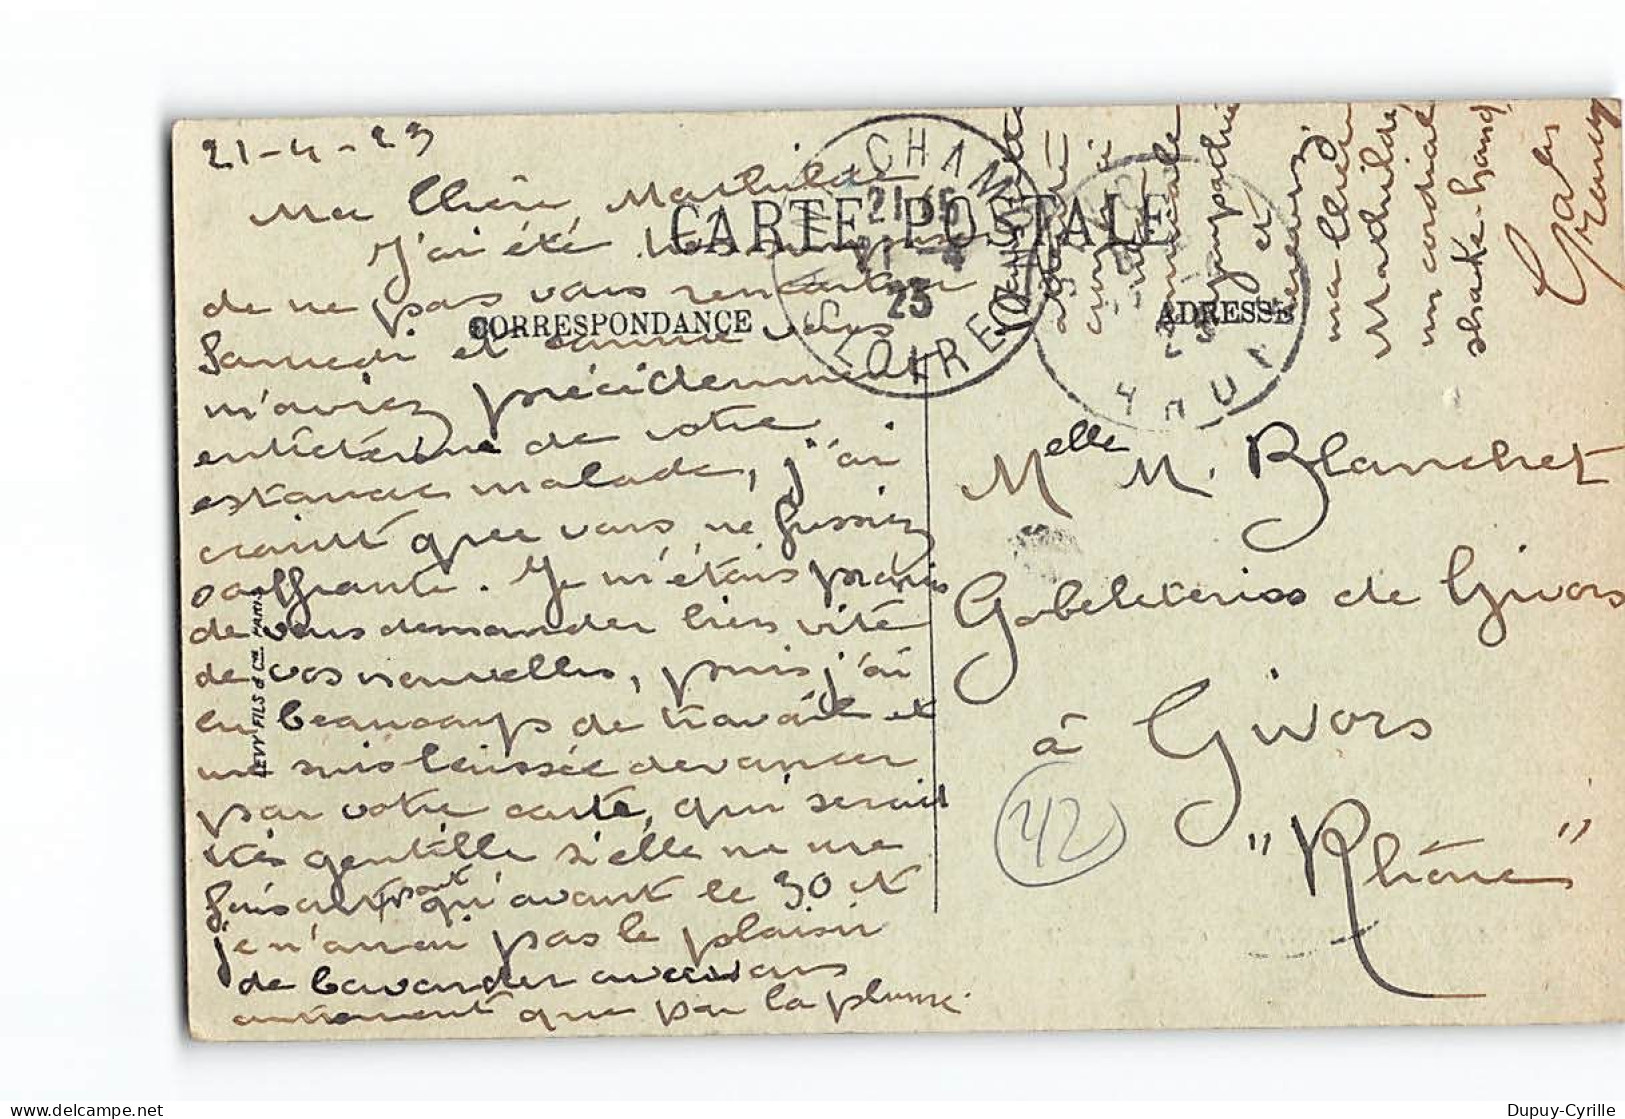 21-4-23
Ma Chère Mathilde
J'ai été très surprise
de ne pas vous rencontrer
Samedi et comme vous
m'aviez précédemment
entretenue de votre
estomac malade, j'ai
craint que vous ne fussiez
souffrante. Je m'étais promis
de vous demander bien vite
de vos nouvelles, puis j'ai
eu beaucoup de travail et
me suis laissée devancer
par votre carte, qui serait
très gentille si elle ne me
faisait part qu'avant le 30 et
je n'aurai pas le plaisir
de bavarder avec vous
autrement que par la plume.
CARTE POSTALE
CORRESPONDANCE
ADRESSE
LEVY FILS & Cie PARIS
CHAM
21 15
21 -4
23
LOIRE
et
ma chère
Mathilde
un cordial
shake-hand
Melle M. Blanchet
Gobeleteries de Givors
à Givors
"Rhône"
42
Dupuy-Cyrille